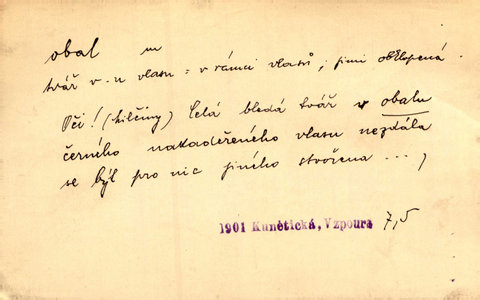 obal m
tvář v -u vlasů = v rámci vlasů, jimi obklopená.
Oči! (hilčiny) Celá bledá tvář v obalu
černého nakadeřeného vlasu nezdála
se být pro nic jiného stvořena ...,
1901 Kunětická, Vzpoura 7,5